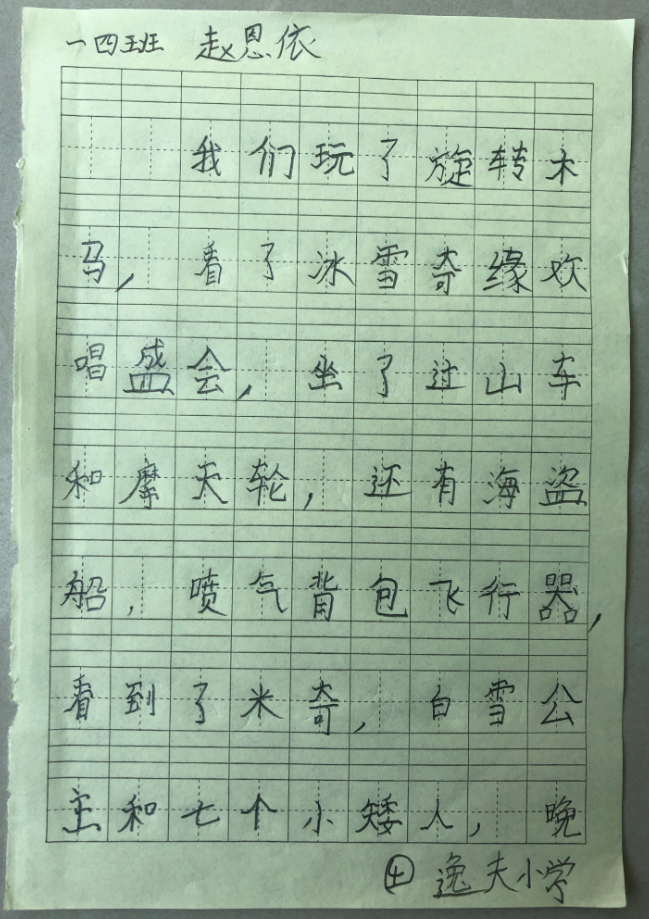 一四班 赵恩依
我们玩了旋转木
马，看了冰雪奇缘欢
唱盛会，坐了过山车
和摩天轮，还有海盗
船，喷气背包飞行器，
看到了米奇，白雪公
主和七个小矮人，晚
④ 逸夫小学